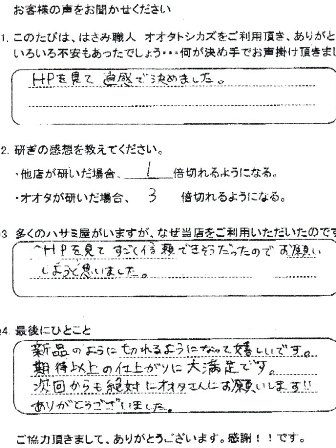 お客様の声をお聞かせください
1. このたびは、はさみ職人 オオタトシカズをご利用頂き、ありがと
いろいろ不安もあったでしょう・・・何が決め手でお声掛け頂きまし
HPを見て 直感で決めました。
2. 研ぎの感想を教えてください。
・他店が研いだ場合、 1 倍切れるようになる。
・オオタが研いだ場合、 3 倍切れるようになる。
3 多くのハサミ屋がいますが、なぜ当店をご利用いただいたのです
HPを見て すごく信頼できそうだったので お願い
しようと思いました。
4. 最後にひとこと
新品のように切れるようになって嬉しいです。
期待以上の仕上がりに大満足です。
次回からも絶対にオオタさんにお願いします!!
ありがとうございました。
ご協力頂きまして、ありがとうございます。感謝!!です。